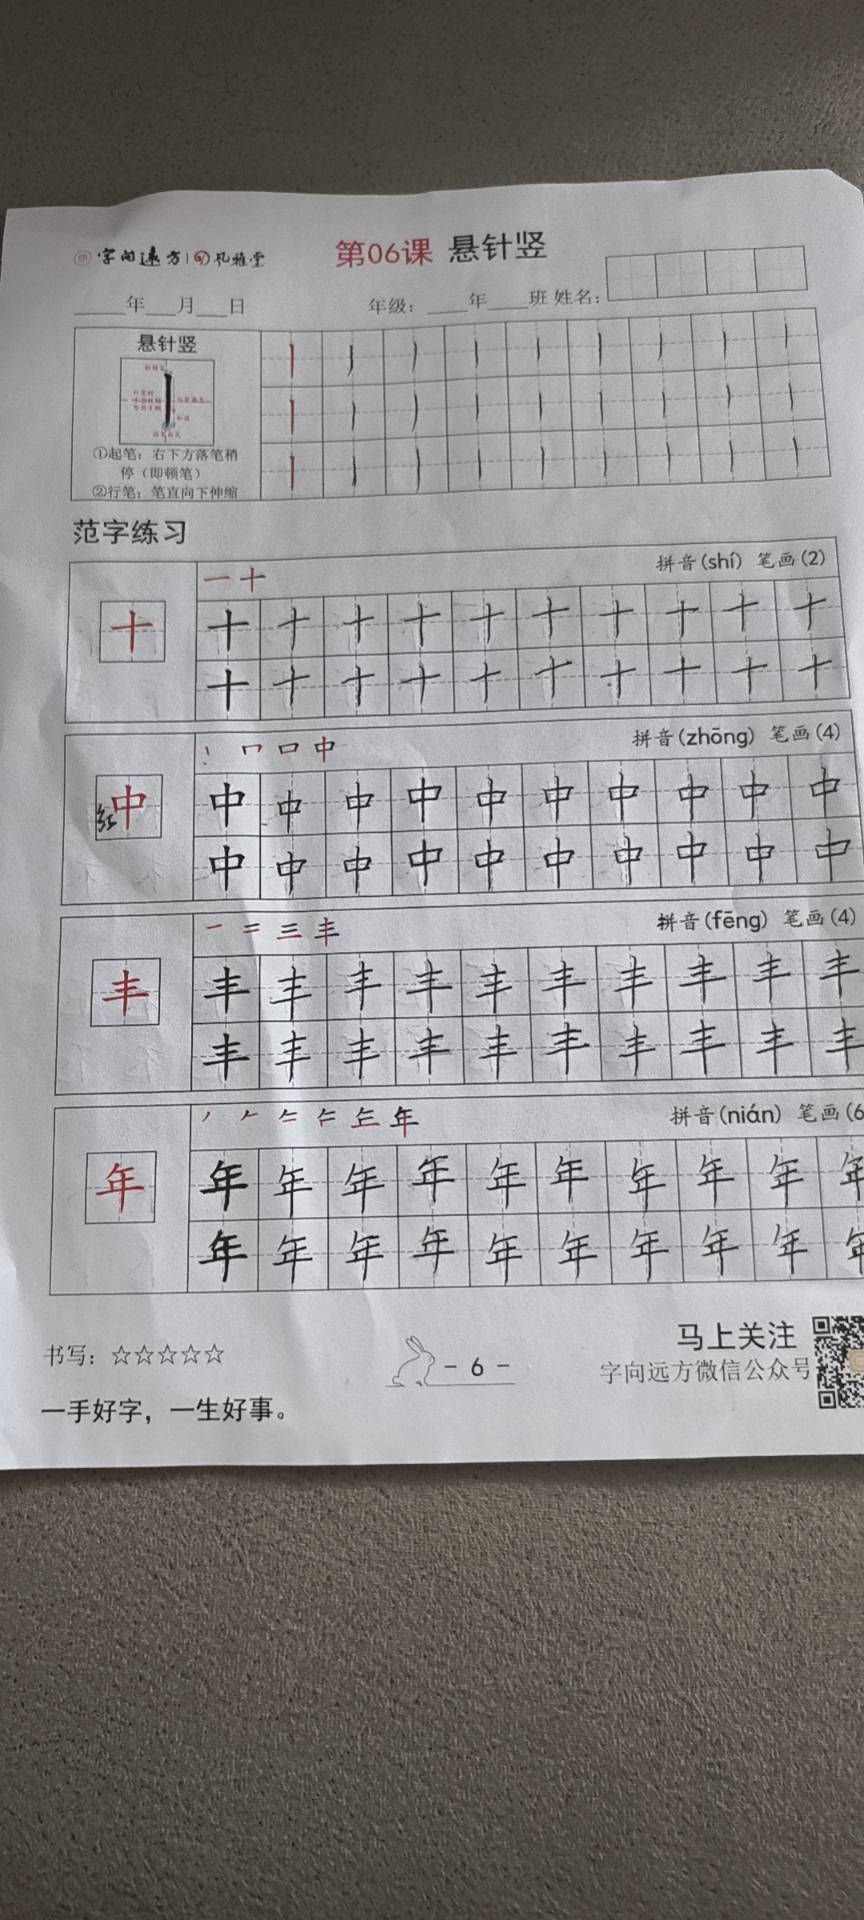 字向远方 | 礼雅堂
第06课 悬针竖
____年___月___日 年级：____年____班 姓名：
悬针竖
①起笔：右下方落笔稍
停（即顿笔）
②行笔：笔直向下伸缩
范字练习
一 十 拼音(shí) 笔画(2)
十 十 十 十 十 十 十 十 十 十 十
十 十 十 十 十 十 十 十 十 十
丨 口 中 拼音(zhōng) 笔画(4)
红
中 中 中 中 中 中 中 中 中 中 中
中 中 中 中 中 中 中 中 中 中
一 二 三 丰 拼音(fēng) 笔画(4)
丰 丰 丰 丰 丰 丰 丰 丰 丰 丰 丰
丰 丰 丰 丰 丰 丰 丰 丰 丰 丰
年 拼音(nián) 笔画(6
年 年 年 年 年 年 年 年 年 年 年
年 年 年 年 年 年 年 年 年 年
书写：☆☆☆☆☆
- 6 -
马上关注
字向远方微信公众号
一手好字，一生好事。